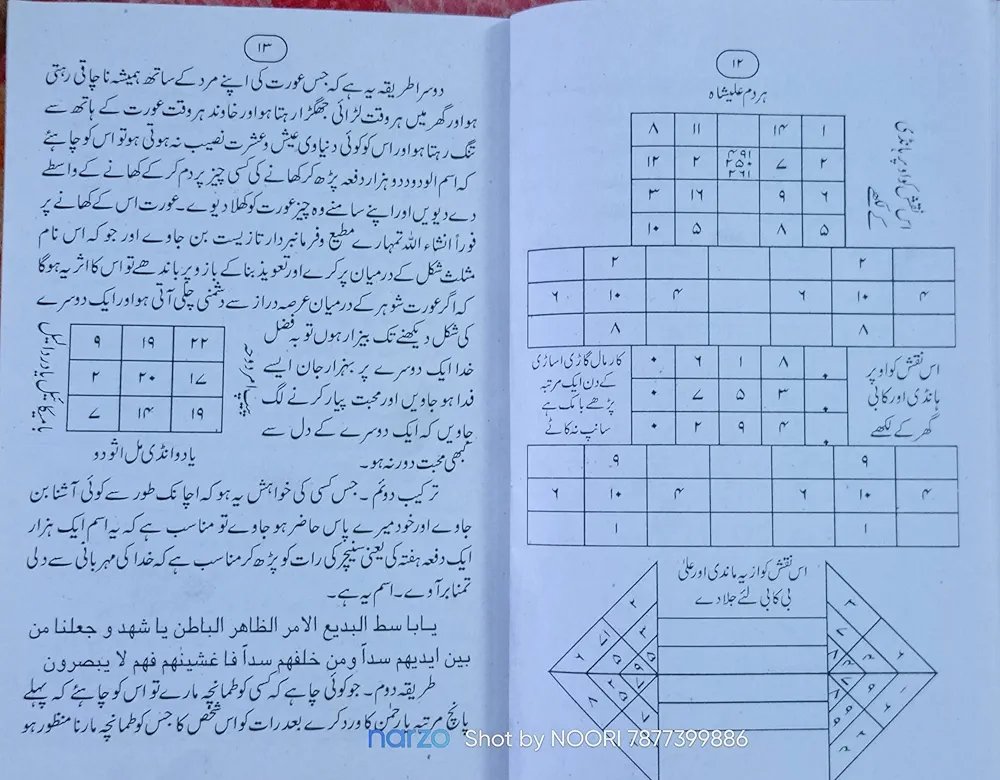 ۱۲
ہردم علیشاہ
۸ ۱۱ ۱۴ ۱
۱۲ ۲ ۷ ۲
۳ ۱۶ ۹ ۶
۱۰ ۵ ۸ ۵
اس نقش کو اوپر ہانڈی
کے لکھے
۲ ۲
۶ ۱۰ ۴ ۶ ۱۰ ۴
۸ ۸
کار مال گاڑی اساڑی
کے دن ایک مرتبہ
پڑھے بانک ہے
سانپ نہ کاٹے
۰ ۶ ۱ ۸ ۰
۰ ۷ ۵ ۳ ۰
۰ ۲ ۹ ۴ ۰
اس نقش کو اوپر
ہانڈی اور کابی
گھر کے لکھے
۹ ۹
۶ ۱۰ ۴ ۶ ۱۰ ۴
۱ ۱
اس نقش کو از یہ ماندی اور علیٰ
بی کابی لئے جلا دے
۱۳
دوسرا طریقہ یہ ہے کہ جس عورت کی اپنے مرد کے ساتھ ہمیشہ ناچاقی رہتی
ہو اور گھر میں ہر وقت لڑائی جھگڑا رہتا ہو اور خاوند ہر وقت عورت کے ہاتھ سے
تنگ رہتا ہو اور اس کو کوئی دنیاوی عیش و عشرت نصیب نہ ہوتی ہو تو اس کو چاہئے
کہ اسم الودود دو ہزار دفعہ پڑھ کر کھانے کی کسی چیز پر دم کر کے کھانے کے واسطے
دے دیویں اور اپنے سامنے وہ چیز عورت کو کھلا دیوے۔ عورت اس کے کھانے پر
فوراً انشاء اللہ تمہارے مطیع و فرمانبردار تازیست بن جاوے اور جو کہ اس نام
مثلث شکل کے درمیان پر کرے اور تعویذ بنا کے بازو پر باندھے تو اس کا اثر یہ ہوگا
کہ اگر عورت شوہر کے درمیان عرصہ دراز سے دشمنی چلی آتی ہو اور ایک دوسرے
کی شکل دیکھنے تک بیزار ہوں تو بہ فضل
خدا ایک دوسرے پر بہزار جان ایسے
فدا ہو جاویں اور محبت پیار کرنے لگ
جاویں کہ ایک دوسرے کے دل سے
کبھی محبت دور نہ ہو۔
۹ ۱۹ ۲۲
۲ ۲۰ ۱۷
۷ ۱۴ ۱۹
یا دوانڈی مل اثو دو
ترکیب دوئم۔ جس کسی کی خواہش یہ ہو کہ اچانک طور سے کوئی آشنا بن
جاوے اور خود میرے پاس حاضر ہو جاوے تو مناسب ہے کہ یہ اسم ایک ہزار
ایک دفعہ ہفتہ کی یعنی سنیچر کی رات کو پڑھ کر مناسب ہے کہ خدا کی مہربانی سے دلی
تمنا برآوے۔ اسم یہ ہے۔
یابا سط البدیع الامر الظاهر الباطن یا شهد و جعلنا من
بین ایدیهم سداً ومن خلفهم سداً فا غشینٰهم فهم لا یبصرون
طریقہ دوم۔ جو کوئی چاہے کہ کسی کو طمانچہ مارے تو اس کو چاہئے کہ پہلے
پانچ مرتبہ یارحمٰن کا ورد کرے بعد رات کو اس شخص کا جس کو طمانچہ مارنا منظور ہو
narzo Shot by NOORI 7877399886